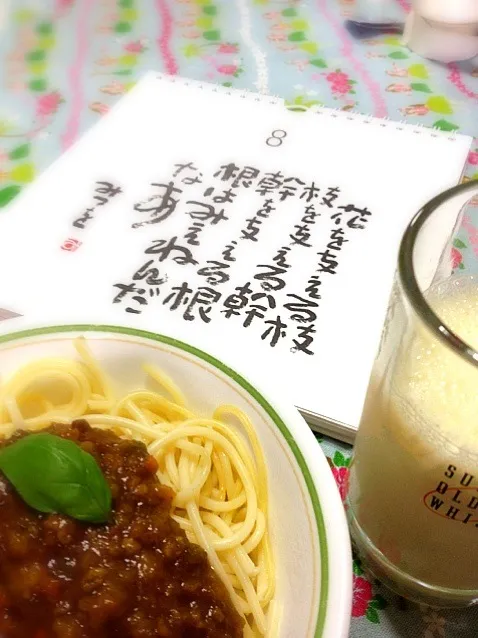 8
花を支える枝
枝を支える幹
幹を支える根
根はみえねんだ
なあ
みつを
SU
OLD
WHI